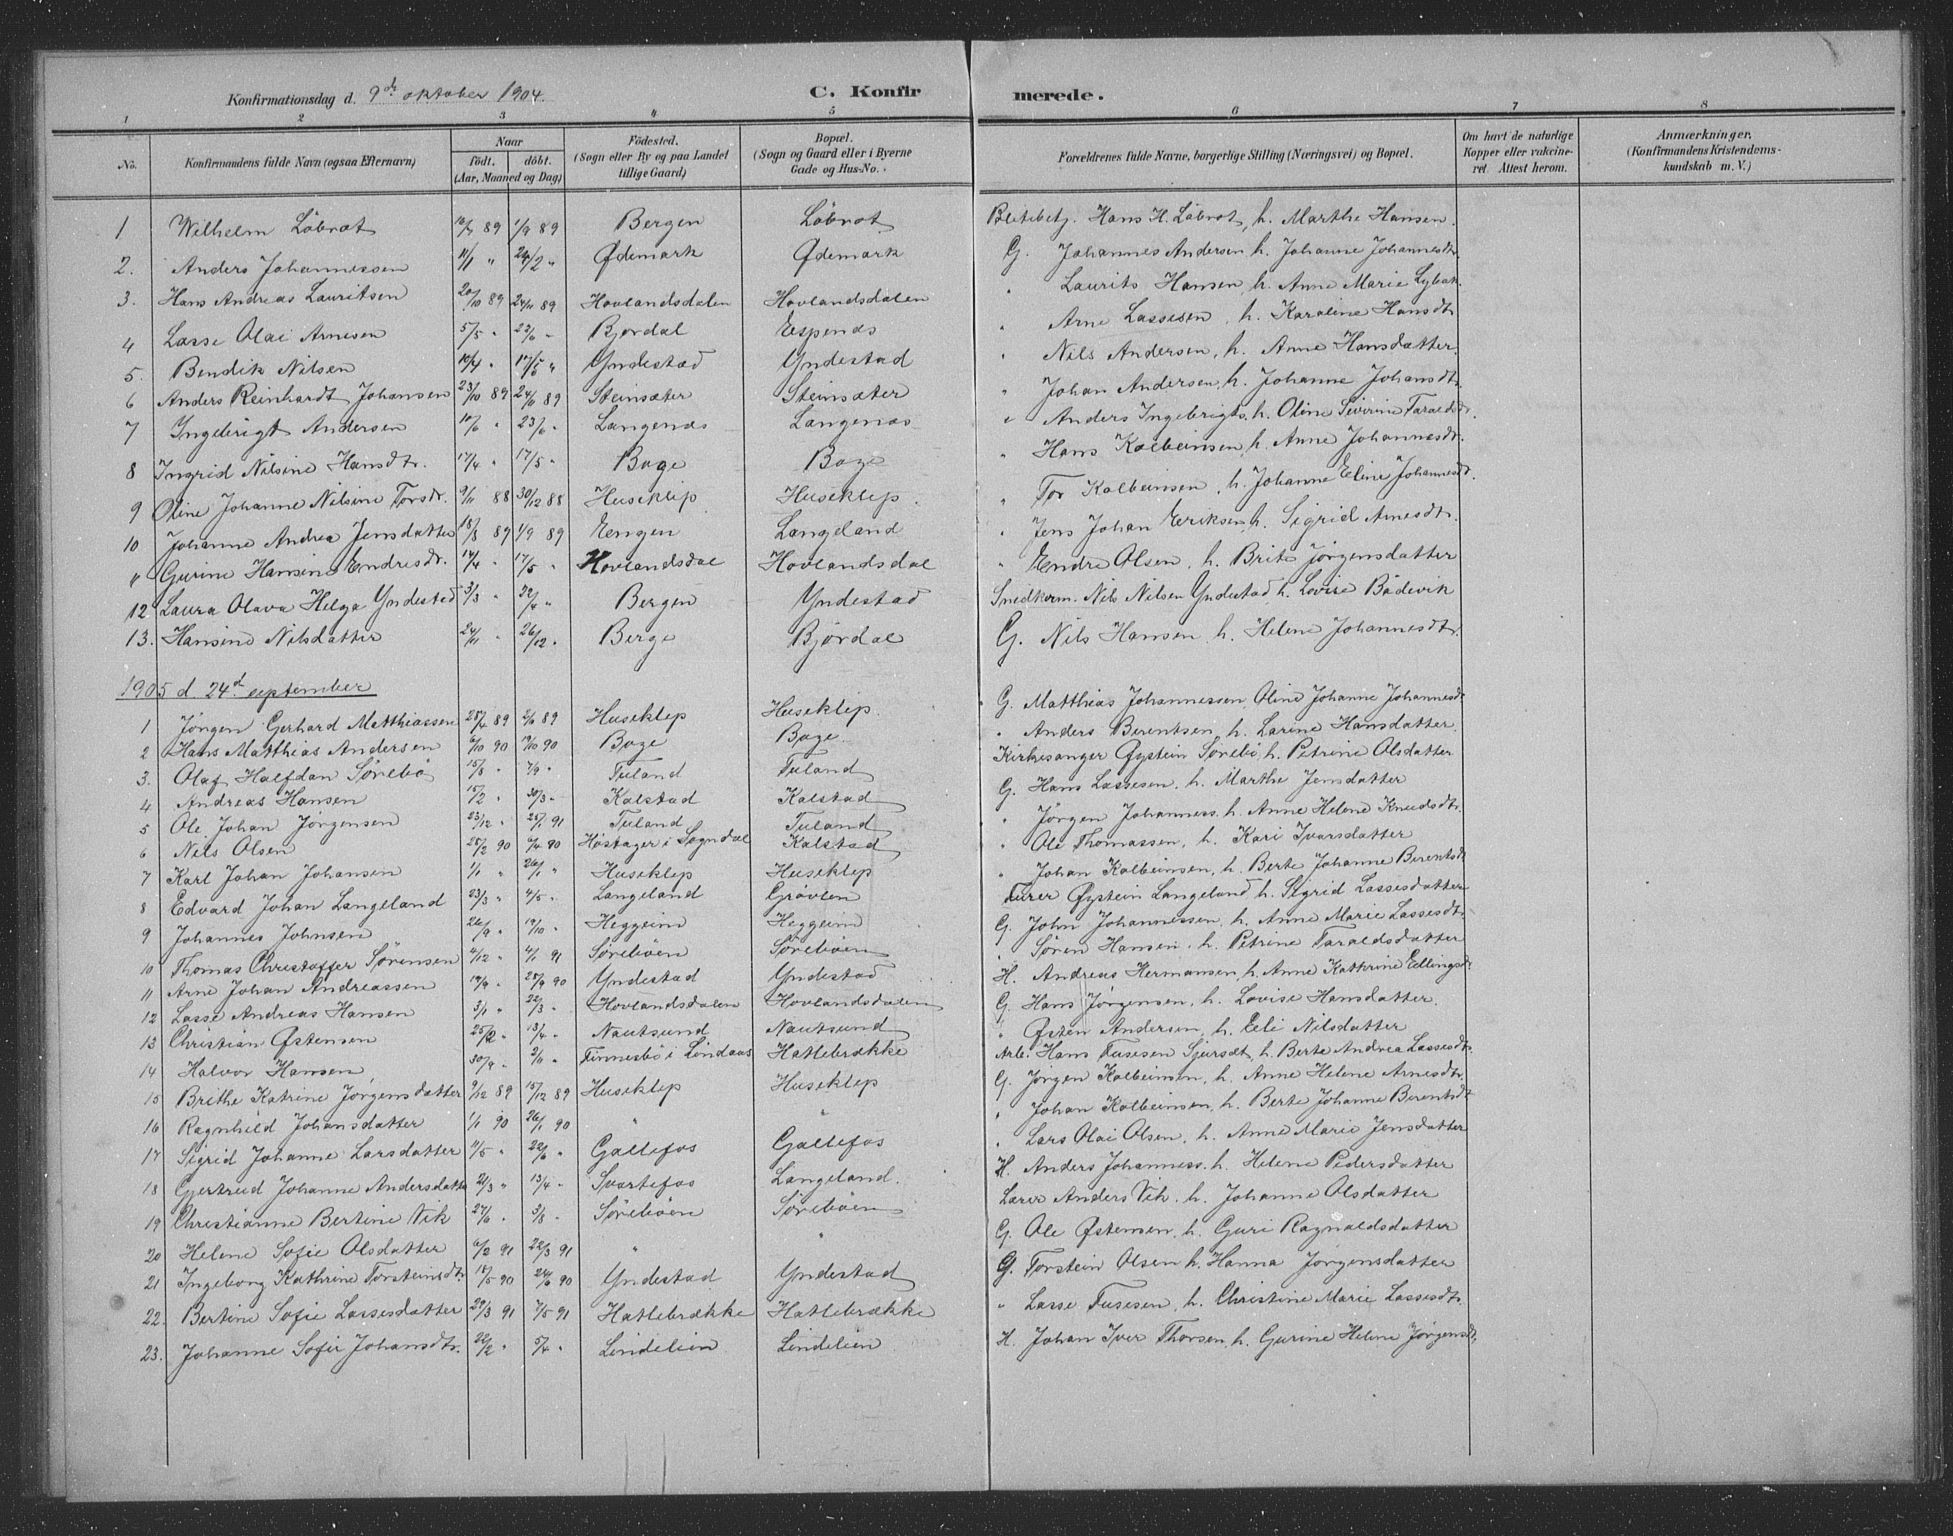 Konfirmationsdag d. 9de oktober 1904. C. Konfir merede.
1 2 3 4 5 6 7 8
No. Konfirmandens fulde Navn (ogsaa Efternavn) Naar født. døbt. (Aar, Maaned og Dag) Fødested. (Sogn eller By og paa Landet tillige Gaard) Bopæl. (Sogn og Gaard eller i Byerne Gade og Hus-No. Forældrenes fulde Navne, borgerlige Stilling (Næringsvei) og Bopæl. Om havt de naturlige Kopper eller vakcineret Attest herom. Anmærkninger. (Konfirmandens Kristendomskundskab m. V.)
1 Wilhelm Løbrot 89 1/9 89 Bergen Løbrot Hans H. Løbrot, h. Marthe Hansen.
2. Anders Johannessen 11/1 " 24/2 " Ødemark Ødemark G. Johannes Andersen h. Johanne Johannesdtr.
3. Hans Andreas Lauritsen 20/10 89 24/11 89 Hovlandsdalen Hovlandsdalen " Laurits Hansen, h. Anne Marie
4 Lasse Olai Arnesen 5/5 " 23/6 " Bjørdal Espenæs " Arne Lassesen, h. Karoline Hansdtr
5. Bendik Nilsen 10/4 " 17/5 " Yndestad Yndestad " Nils Andersen, h. Anne Hansdatter.
6 Anders Reinhardt Johansen 23/10 89 24/11 89 Steinsæter Steinsæter " Johan Andersen, h. Johanne Johansdtr.
7 Ingebrigt Andersen 10/6 " 23/6 " Langenæs Langenæs " Anders Ingebrigts. h. Oline Siverine Taraldsdtr.
8 Ingrid Nilsine Hansdtr. 17/4 " 17/5 " Boge Boge " Hans Kolbeinsen, h. Anne Johannesdtr.
9 Oline Johanne Nilsine Torsdr. 9/11 88 30/12 88 Huseklep Huseklep. " Tor Kolbeinsen, h. Johanne Eline Johannesdtr.
10 Johanne Andrea Jensdatter 18/8 89 1/9 89 Engen Langeland " Jens Johan Eriksen h. Sigrid Arnesdtr.
" Gurine Hansine Endresdr. 14/4 " 17/5 " Hovlandsdal Hovlandsdal " Endre Olsen, h. Brite Jørgensdatter
12 Laura Olava Helga Yndestad 3/3 " 22/4 " Bergen Yndestad Snedkerm. Nils Nilsen Yndestad h. Lovise Bødevik
13. Hansine Nilsdatter 24/11 " 26/12 " Berge Bjørdal G. Nils Hansen, h. Helene Johannesdtr.
1905 d. 24d september
1 Jørgen Gerhard Matthiassen 28/4 89 2/6 89 Huseklep Huseklep. G. Matthias Johannessen Oline Johanne Johannesdr
2 Hans Matthias Andersen 6/10 90 19/10 90 Boge Boge. " Anders Berentsen, h. Larine Hansdatter
3. Olaf Halfdan Sørebø 15/8 " 7/9 " Tuland Tuland Kirkesanger Øystein Sørebø, h. Petrine Olsdatter
4 Andreas Hansen 15/2 " 30/3 " Kalstad Kalstad G. Hans Lassesen, h. Marthe Jensdatter
5 Ole Johan Jørgensen 23/12 " 25/1 91 Tuland Tuland " Jørgen Johanness. h. Anne Helene Knudsdtr.
6 Nils Olsen 25/2 90 6/4 90 Høstager i Sogndal Kalstad " Ole Thomassen, h. Kari Ivarsdatter
7 Karl Johan Johansen 1/1 " 26/1 " Huseklep Huseklep " Johan Kolbeinsen, h. Berte Johanne Berentsdr
8 Edvard Johan Langeland 23/3 " 4/5 " Langeland Grøvlen Lærer Øystein Langeland h. Sigrid Lassesdatter
9 Johannes Johnsen 26/9 " 19/10 " Heggeim Heggeim G. John Johannessen, h. Anne Marie Lassesdtr.
10 Thomas Christoffer Sørensen 4/12 " 4/1 91 Sørebøen Sørebøen " Søren Hansen, h. Petrine Taraldsdatter
11 Arne Johan Andreassen 14/9 " 28/9 90 Yndestad Yndestad H. Andreas Hermansen, h. Anne Kathrine Ellingsdr
12 Lasse Andreas Hansen 3/1 " 22/3 " Hovlandsdalen Hovlandsdalen G. Hans Jørgensen, h. Lovise Hansdatter.
13 Christian Østensen 25/2 " 13/4 " Nautsund Nautsund " Østen Andersen, h. Eli Nilsdatter
14 Halvor Hansen 30/4 " 2/6 " Finnesbø i Lindaas Hattebrække Arb. Hans Tusesen h. Berte Andrea Lassesdtr.
15 Brithe Katrine Jørgensdatter 9/12 89 15/12 89 Huseklep Huseklep G. Jørgen Kolbeinsen, h. Anne Helene Arnesdtr.
16 Ragnhild Johansdatter 1/1 90 26/1 90 " " " Johan Kolbeinsen, h. Berte Johanne Berentsdr
17 Sigrid Johanne Larsdatter 11/5 " 22/6 " Gallefos Gallefos " Lars Olai Olsen, h. Anne Marie Jensdatter
18 Gjertrud Johanne Andersdatter 21/3 " 13/4 " Svartefos Langeland. H. Anders Johanness. h. Helene Pedersdatter
19 Christianne Bertine Vik 27/6 " 3/8 " Sørebøen Sørebøen Lærer Anders Vik, h. Johanne Olsdatter
20 Helene Sofie Olsdatter 6/2 91 22/3 91 " " G. Ole Østensen, h. Guri Ragnaldsdatter
21 Ingeborg Kathrine Torsteinsdtr 18/5 90 24/6 90 Yndestad Yndestad G. Torstein Olsen h. Hanna Jørgensdatter
22 Bertine Sofie Lassesdatter 29/3 91 7/5 91 Hattebrække Hattebrække " Lasse Tusesen, h. Christine Marie Lassesdtr.
23. Johanne Sofie Johansdtr. 22/2 " 5/4 " Lindeleien Lindeleien H. Johan Iver Thorsen, h. Gurine Helene Jørgensdtr.